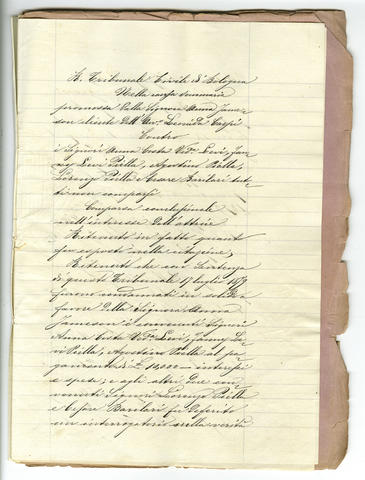 R. Tribunale Civile di Bologna
Nella causa sommaria
promossa dalla Signora Anna Jame-
son cliente dell'Avv. Leonida Carpi
Contro
i Signori Anna Costa Vda. Levi, Janny
Levi Piella, Agostino Piella
Lorenzo Piella e Cesare Barilari tut-
ti non comparsi
Comparsa conclusionale
nell'interesse dell'attrice
Ritenuto in fatto quant
fu esposto nella citazione,
Ritenuto che con Sentenza
di questo Tribunale 17 luglio
furono condannati in solido a
favore della Signora Anna
Jameson i convenuti Signori
Anna Costa Vda. Levi, Janny Le-
vi Piella, Agostino Piella al pa-
gamento di £ 10,000 — interessi
e spese; e agli altri due con-
venuti Signori Lorenzo Piella
e Cesare Barilari fu deferito
un interrogatorio sulla verità